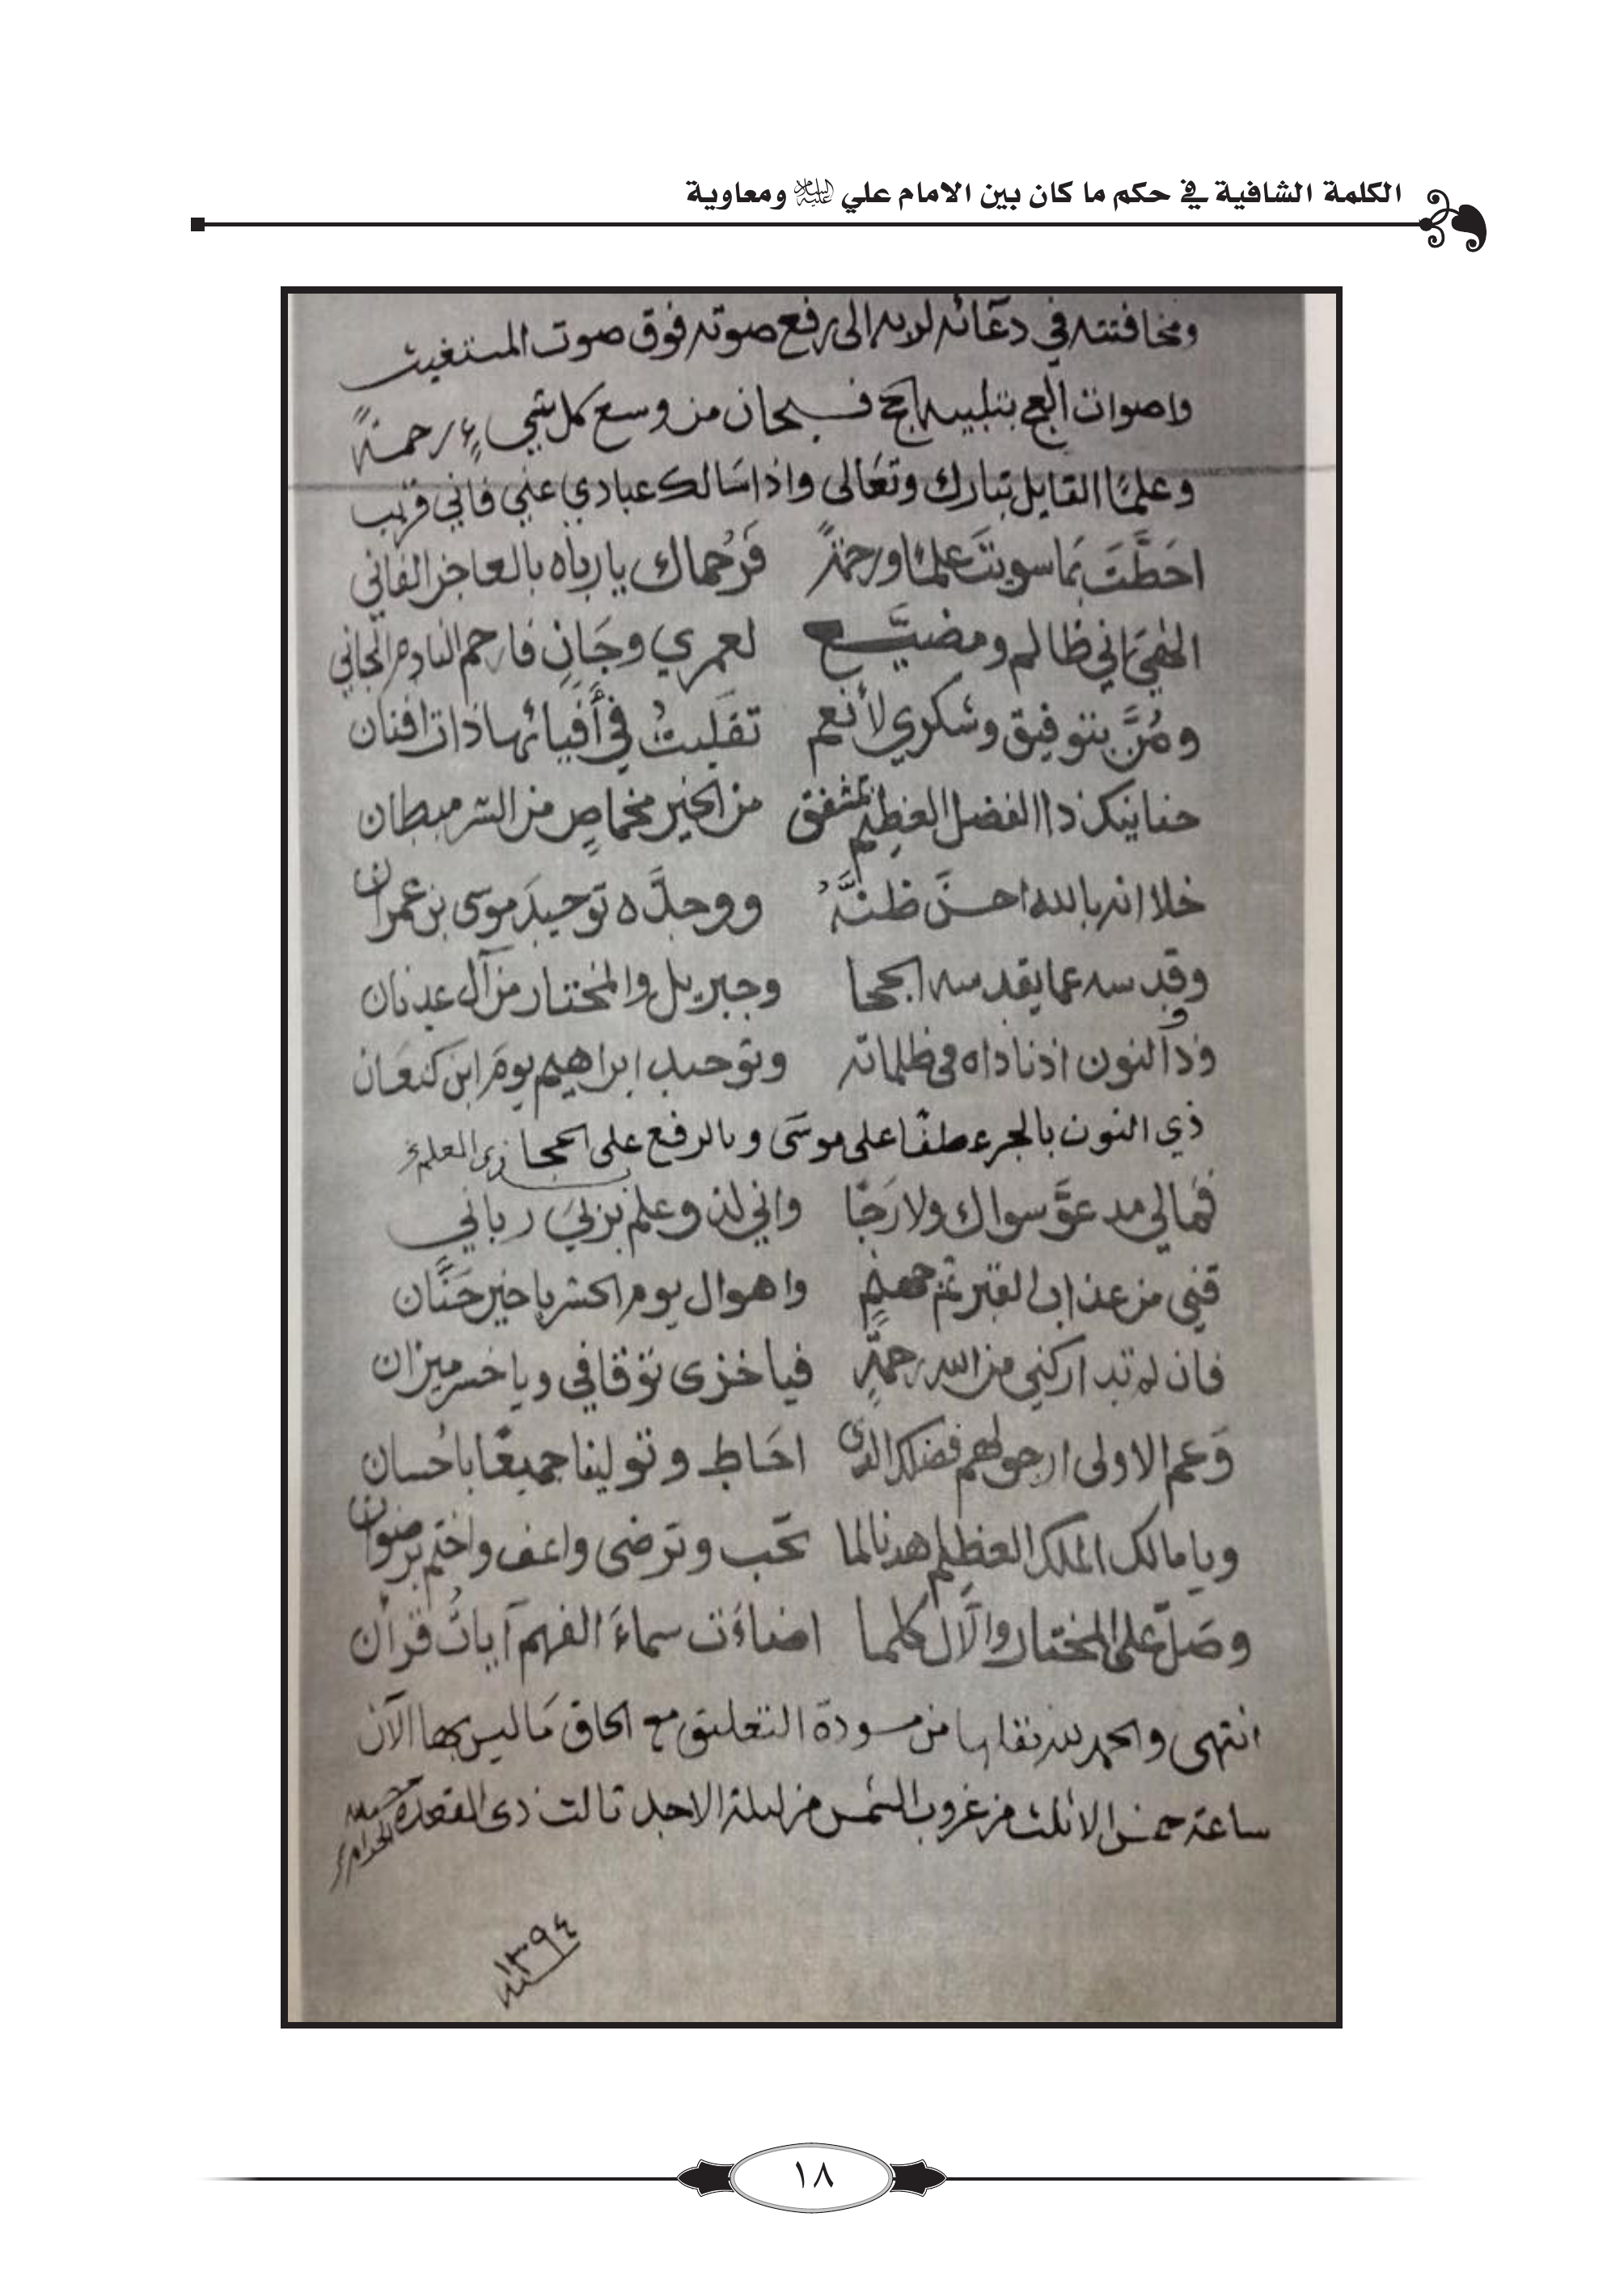 الكلمة الشافية في حكم ما كان بين الامام علي عليه السلام ومعاوية
ومخافتته في دعائه لربه الى رفع صوته فوق صوت المستغيث
واصوات العج بتلبيه الحج فسبحان من وسع كل شيء رحمة
وعلمًا القايل تبارك وتعالى واذا سالك عبادي عني فاني قريب
احَطْتَ بما سويتَ علمًا ورحمةً فَرُحماك يا رباه بالعاجز الفاني
الهي اني ظالم ومضيّع لعمري وجَانٍ فارحم النادم الجاني
ومُنَّ بتوفيق وشكري لأنعم تقلبتُ في أفيائها ذات افنان
حنانيك ذا الفضل العظيم لمشفق من الخير مخماصٍ من الشر مبطان
خلا انه بالله احسنَ ظنَّهُ ووحدّه توحيدَ موسى بن عمران
وقدسه عما يقدسه الحجا وجبريل والمختار من آل عدنان
وذا النون اذ ناداه في ظلماته وتوحيد ابراهيم يومَ ابن كنعان
ذي النون بالجر عطفًا على موسَى وبالرفع على الحجا
فمالي سواك ولا رَجًا واني لذو علم بزليَ رباني
قني من عذاب القبر ثم جهنمٍ واهوال يوم الحشر يا خير حَنَّان
فان لم تداركني من الله رحمةٍ فيا خزى توقافي ويا خسر ميزان
وَعم الاولى ارجو لهم فضلك الذي احَاط وتولينا جميعًا باحسان
ويا مالك الملك العظيم اهدنا لما تحب وترضى واعف واختم برضوان
وصَلّ على المختار والآل كلما اضاءَت سماءَ الفهم آياتُ قرآن
انتهى والحمد لله نقلها من مسودة التعليق مع الحاق مَا ليس بها الآن
ساعة خمس الا ثلث من غروب الشمس من ليلة الاحد ثالث ذى القعدة الحرام
سنة ١٣٩٤
١٨